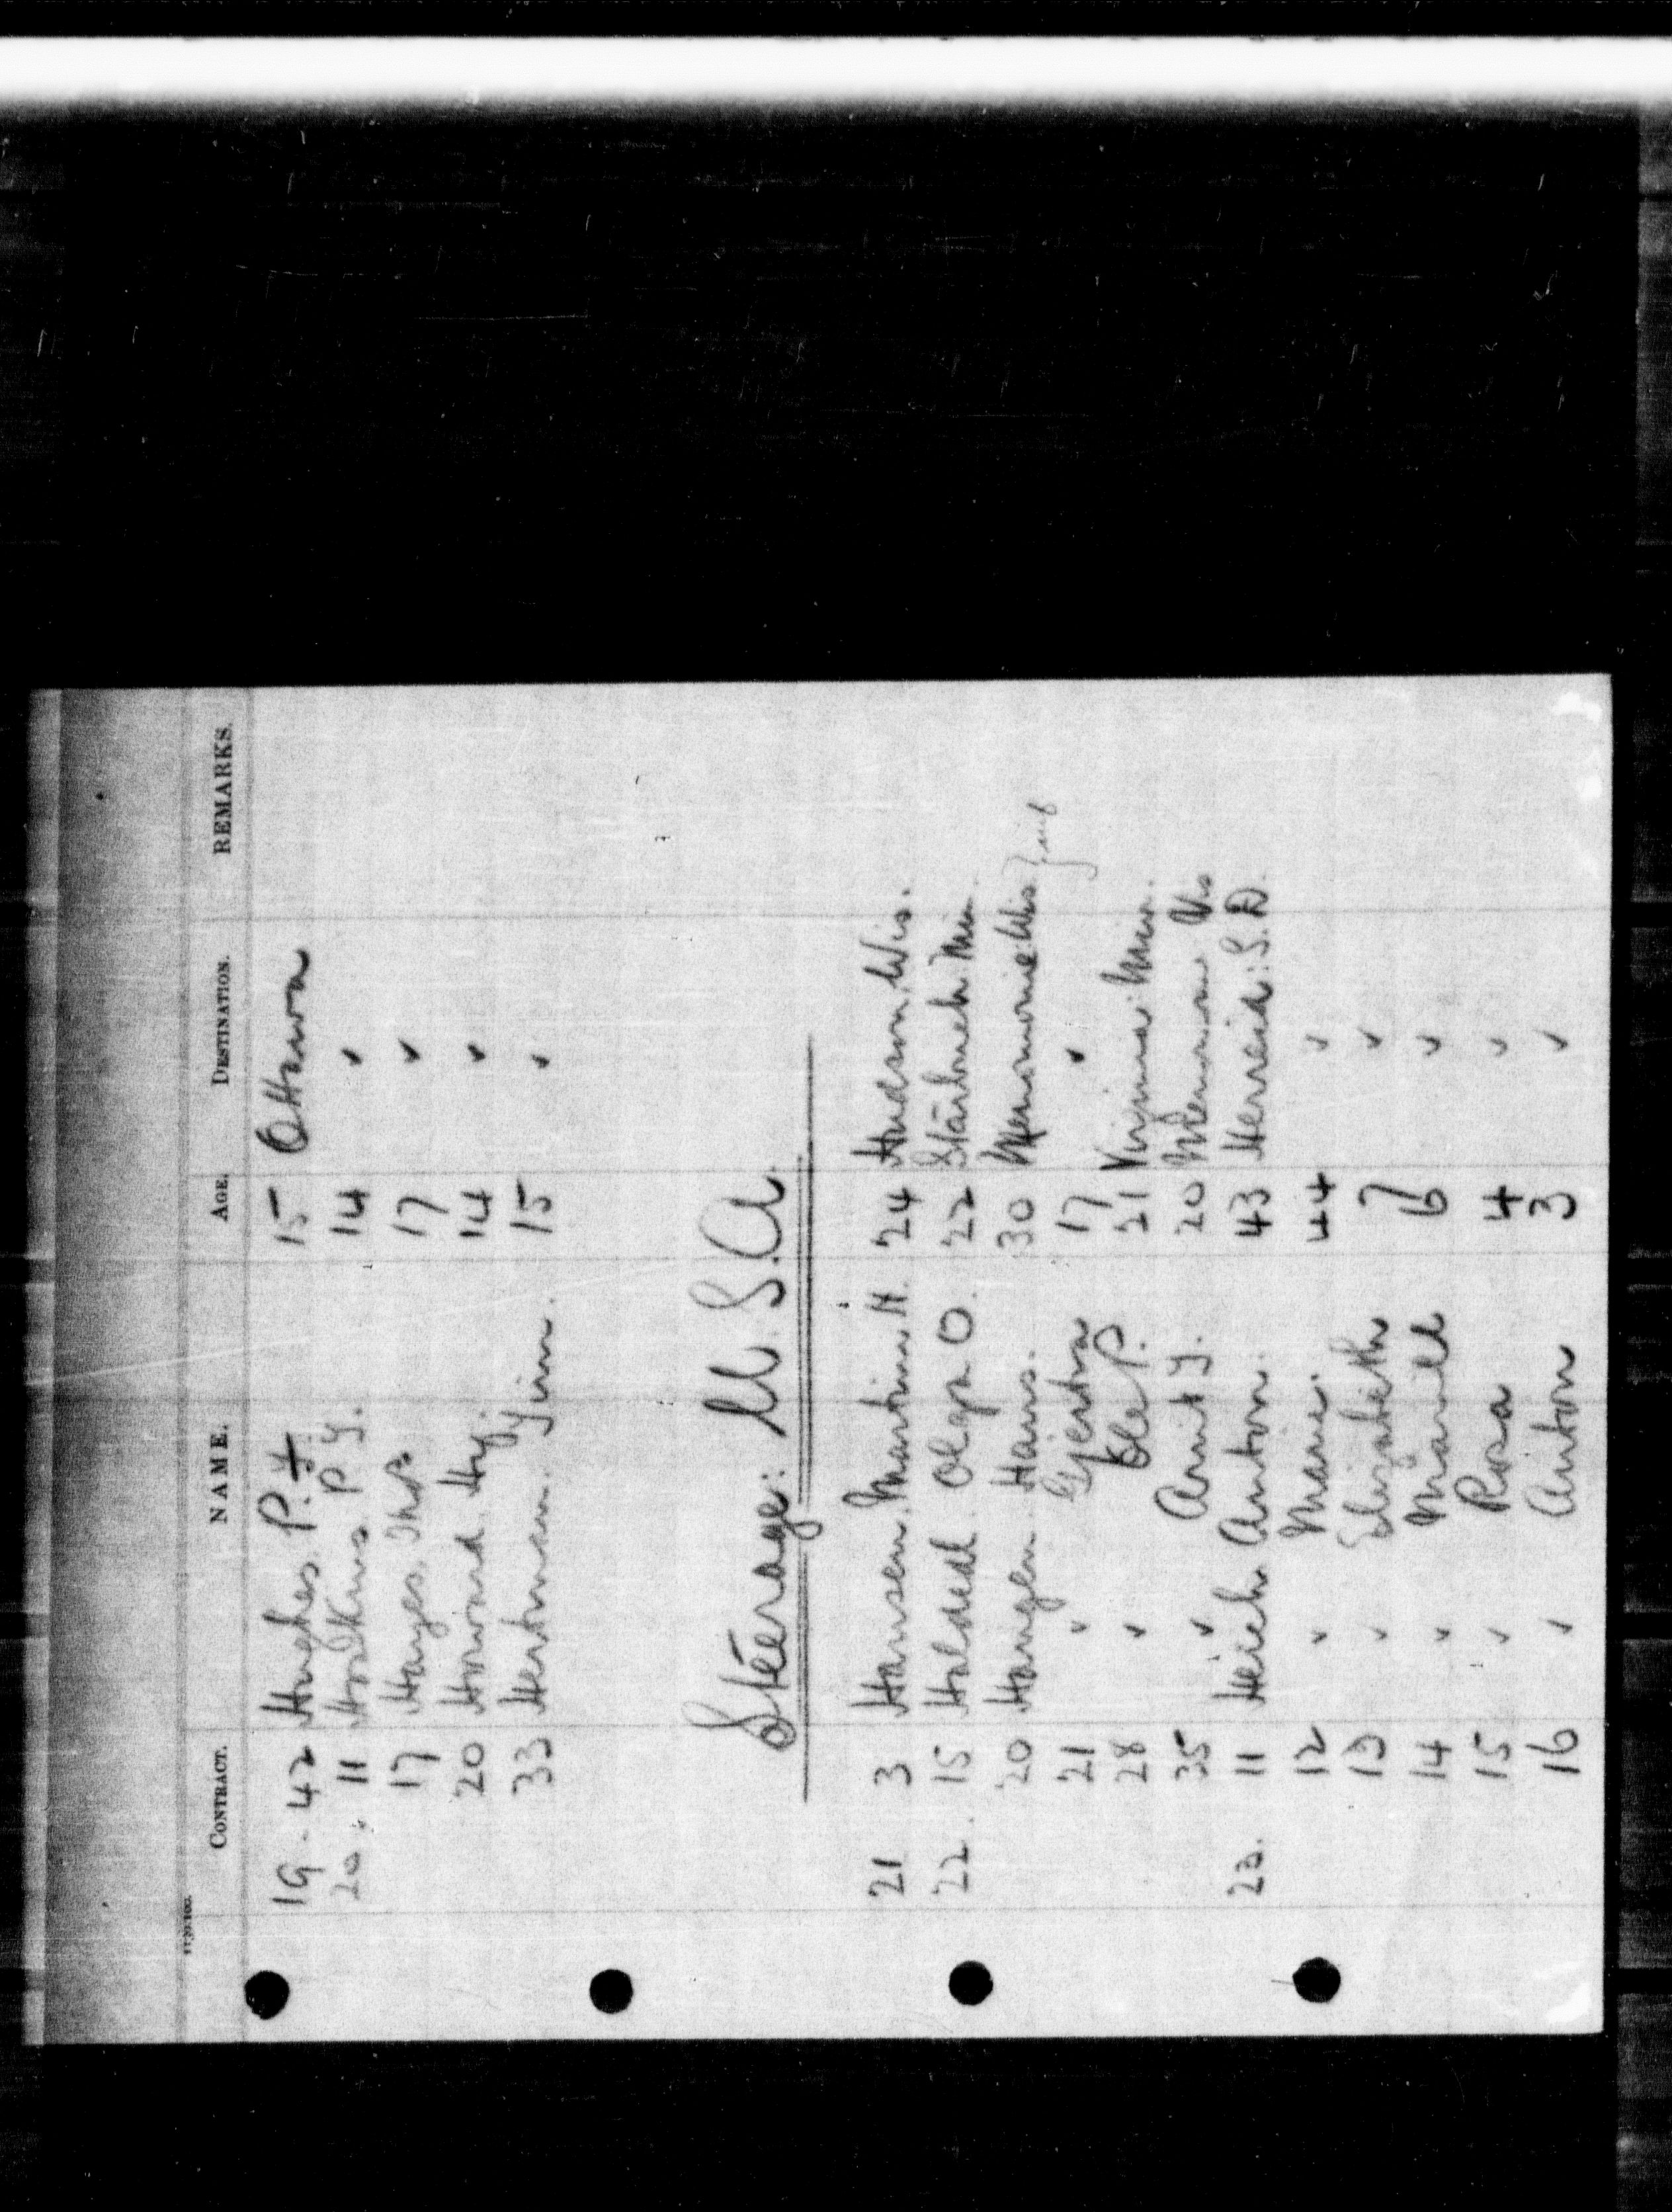 CONTRACT. NAME. AGE. DESTINATION. REMARKS.
19 - 42 Hughes P. F. 15 Ottawa
20. 11 Hodkins P J. 14 ✓
17 Hayes Thos 17 ✓
20 Howard Hy. 14 ✓
33 Hertman Jim. 15 ✓
Steerage: U.S.A.
21 3 Hansen Martin H. 24 Hudson, Wis.
22. 15 Halsdedl. Olga O. 22 Starbuck Min.
20 Haugen Hans. 30 Menomonie Wis.
21 ✓ Gjertra 17 ✓
28 ✓ Ole P. 21 Virginia Minn.
35 ✓ Arnit J. 20 Menomonie Wis
23. 11 Heich Anton. 43 Herreid: S.D.
12 ✓ Marie. 44 ✓
13 ✓ Elizabeth 7 ✓
14 ✓ 6 ✓
15 ✓ Rosa 4 ✓
16 ✓ Anton 3 ✓